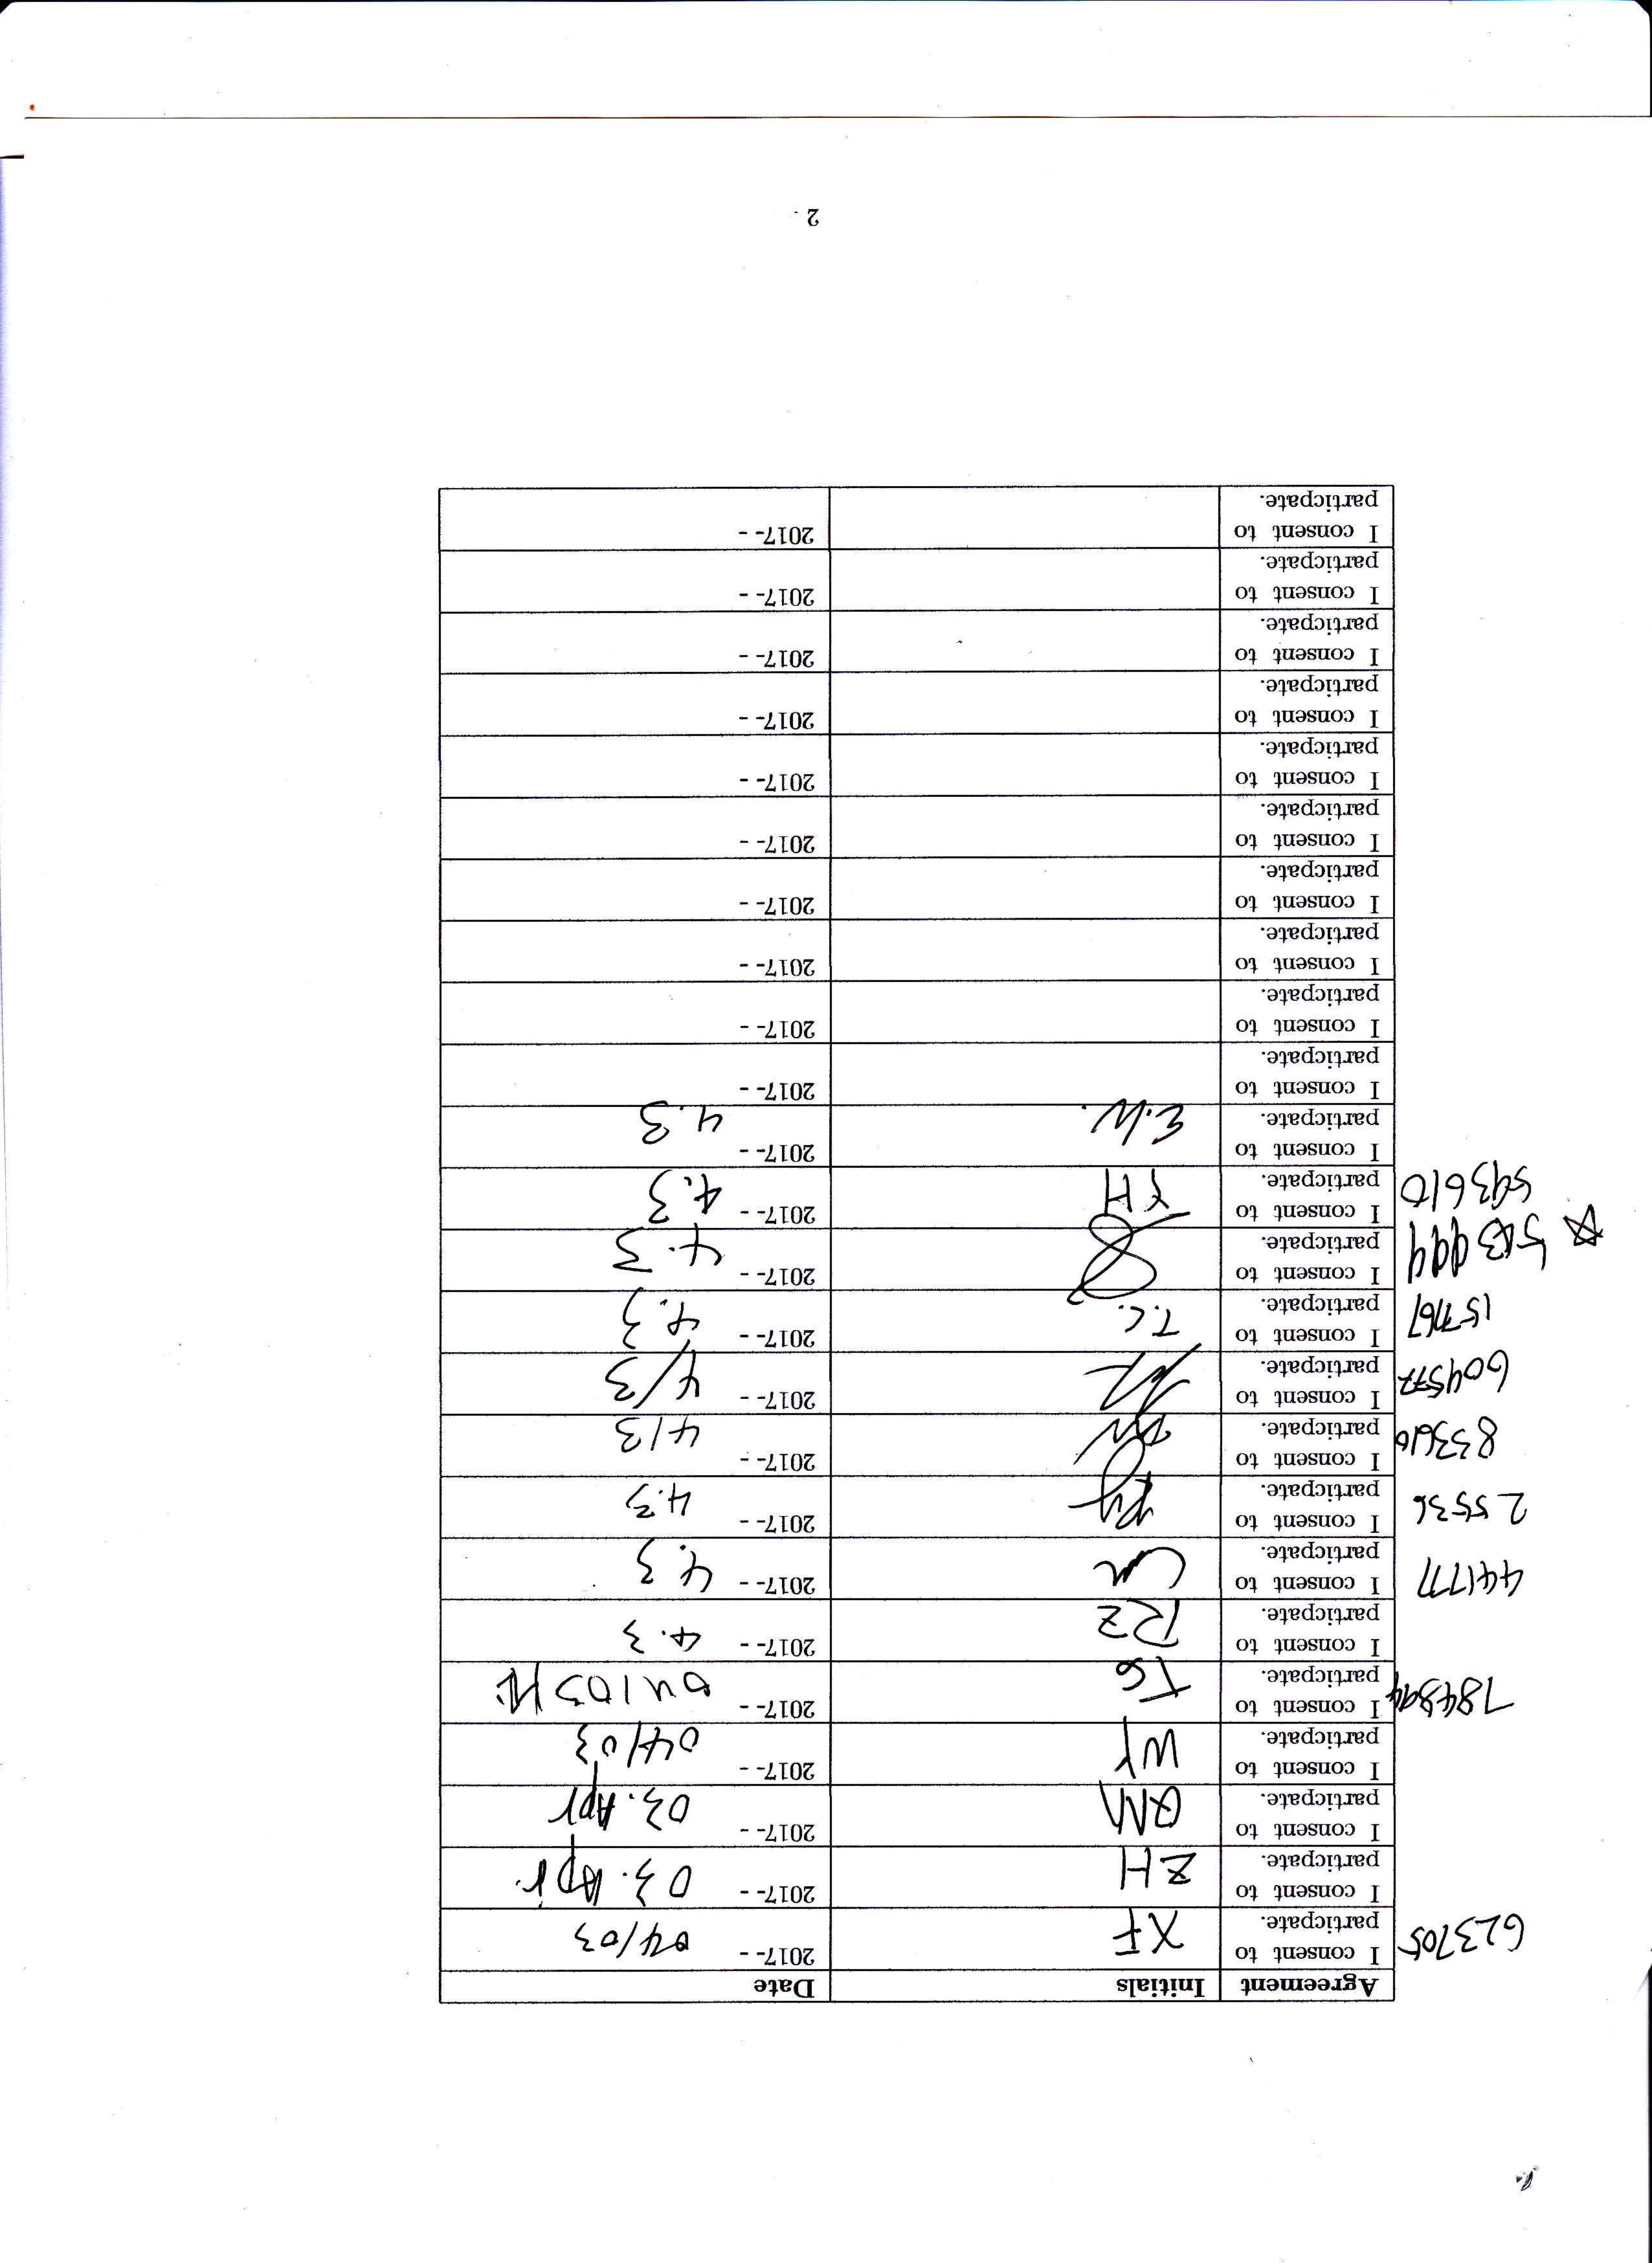 Agreement Initials Date
623705 I consent to particpate. XF 2017- - 04/03
I consent to particpate. ZH 2017- - 03. Apr.
I consent to particpate. QM 2017- - 03. Apr
I consent to particpate. WY 2017- - 04/03
784894 I consent to particpate. TG 2017- - 04/03
I consent to particpate. RZ 2017- - 4.3
441777 I consent to particpate. CM 2017- - 4.3
25536 I consent to particpate. RY 2017- - 4.3
833610 I consent to particpate. DW 2017- - 4/3
604577 I consent to particpate. 2017- - 4/3
157767 I consent to particpate. T.C. 2017- - 4.3
I consent to particpate. 2017- - 4.3
593610 I consent to particpate. YH 2017- - 4.3
I consent to particpate. E.W. 2017- - 4.3
I consent to particpate. 2017- -
I consent to particpate. 2017- -
I consent to particpate. 2017- -
I consent to particpate. 2017- -
I consent to particpate. 2017- -
I consent to particpate. 2017- -
I consent to particpate. 2017- -
I consent to particpate. 2017- -
I consent to particpate. 2017- -
I consent to particpate. 2017- -
2